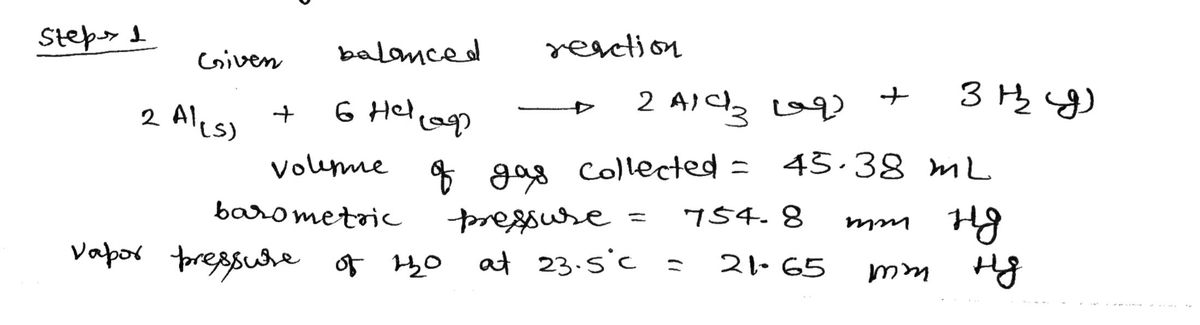 Step-1
Given balanced reaction
2 Al(s) + 6 HCl(aq) → 2 AlCl3 (aq) + 3 H2 (g)
volume of gas collected = 45.38 mL
barometric pressure = 754.8 mm Hg
Vapor pressure of H2O at 23.5°C = 21.65 mm Hg